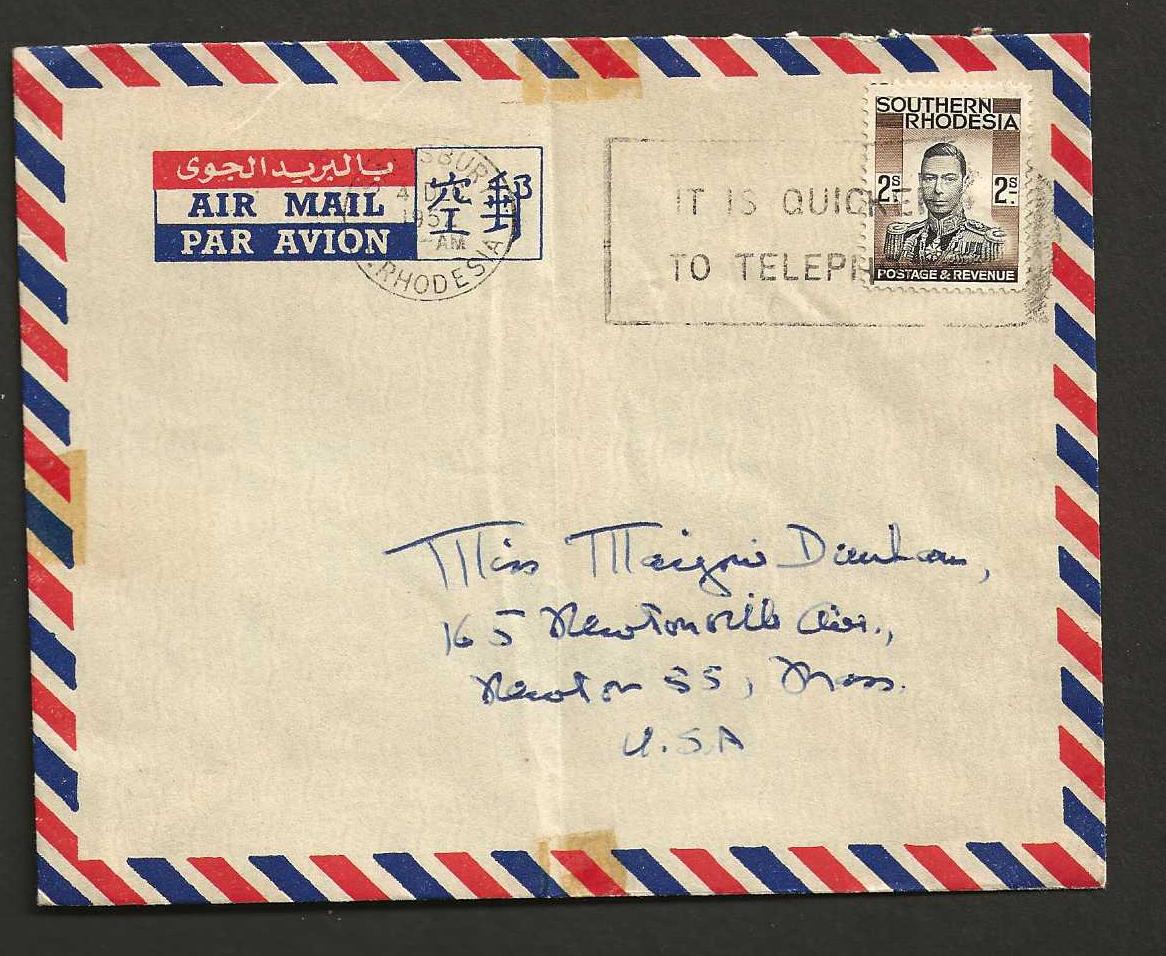 SOUTHERN
RHODESIA
2s 2s
POSTAGE & REVENUE
بالبريد الجوى
AIR MAIL
PAR AVION
郵空
SBUR
4 D
195
AM
RHODESIA
IT IS QUICKER
TO TELEPH
Miss Dunham,
165 Newtonville Ave.,
Newton 55, Mass.
U.S.A